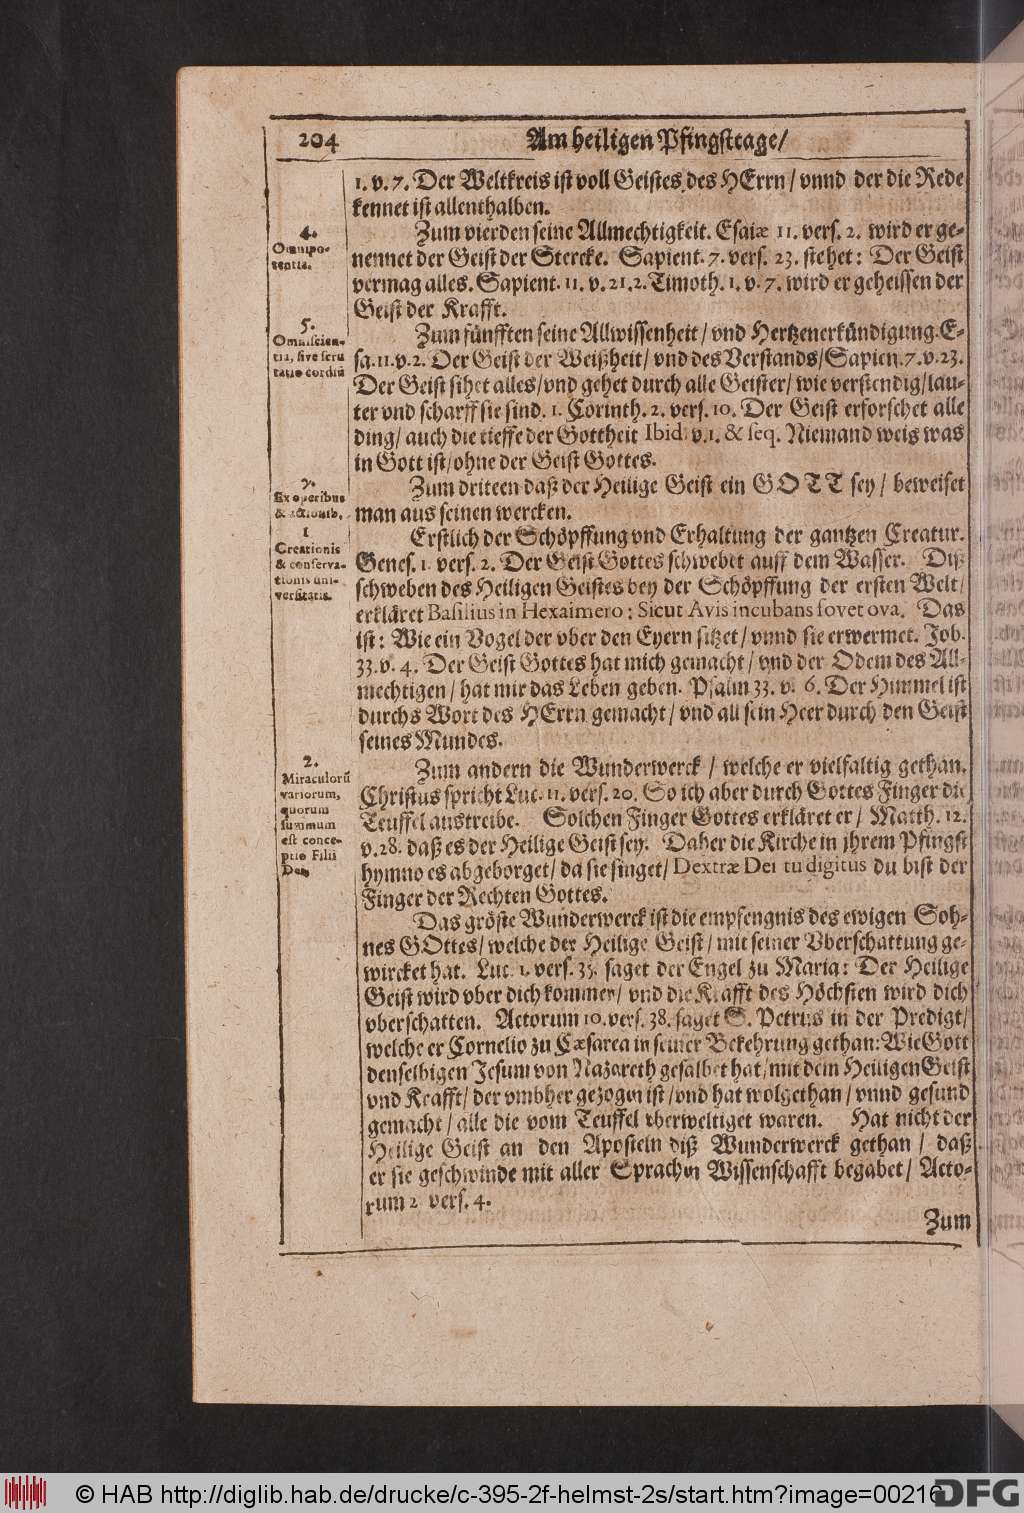 204
Am heiligen Pfingsttage/
1. v. 7. Der Weltkreis ist voll Geistes des HErrn / vnnd der die Rede
kennet ist allenthalben.
4.
Omnipo-
tentia.
Zum vierden seine Allmechtigkeit. Esaiæ 11. vers. 2. wird er ge-
nennet der Geist der Stercke. Sapient. 7. vers. 23. stehet: Der Geist
vermag alles. Sapient. 11. v. 21. 2. Timoth. 1. v. 7. wird er geheissen der
Geist der Krafft.
5.
Omniscien-
tia, sive scru
tatio cordiū
Zum fünfften seine Allwissenheit / vnd Hertzenerkündigung. E-
sa. 11. v. 2. Der Geist der Weißheit / vnd des Verstands / Sapien. 7. v. 23.
Der Geist sihet alles / vnd gehet durch alle Geister / wie verstendig / lau-
ter vnd scharff sie sind. 1. Corinth. 2. vers. 10. Der Geist erforschet alle
ding / auch die tieffe der Gottheit Ibid. v. 1. & seq. Niemand weis was
in Gott ist / ohne der Geist Gottes.
Ex operibus
& actionib.
Zum dritten daß der Heilige Geist ein GOTT sey / beweiset
man aus seinen wercken.
1
Creationis
& conserva-
tionis uni-
versitatis.
Erstlich der Schöpffung vnd Erhaltung der gantzen Creatur.
Genes. 1. vers. 2. Der Geist Gottes schwebet auff dem Wasser. Diß
schweben des Heiligen Geistes bey der Schöpffung der ersten Welt /
erkläret Basilius in Hexaimero: Sicut Avis incubans fovet ova. Das
ist: Wie ein Vogel der vber den Eyern sitzet / vnnd sie erwermet. Job.
33. v. 4. Der Geist Gottes hat mich gemacht / vnd der Odem des All-
mechtigen / hat mir das Leben geben. Psalm 33. v. 6. Der Himmel ist
durchs Wort des HErrn gemacht / vnd all sein Heer durch den Geist
seines Mundes.
2.
Miraculorū
variorum,
quorum
summum
est conce-
ptio Filii
Dei,
Zum andern die Wunderwerck / welche er vielfaltig gethan.
Christus spricht Luc. 11. vers. 20. So ich aber durch Gottes Finger die
Teuffel austreibe. Solchen Finger Gottes erkläret er / Matth. 12.
v. 28. daß es der Heilige Geist sey. Daher die Kirche in jhrem Pfingst
hymno es abgeborget / da sie singet / Dextræ Dei tu digitus du bist der
Finger der Rechten Gottes.
Das gröste Wunderwerck ist die empfengnis des ewigen Soh-
nes GOttes / welche der Heilige Geist / mit seiner Vberschattung ge-
wircket hat. Luc. 1. vers. 35. saget der Engel zu Maria: Der Heilige
Geist wird vber dich kommen / vnd die Krafft des Höchsten wird dich
vberschatten. Actorum 10. vers. 38. saget S. Petrus in der Predigt /
welche er Cornelio zu Cæsarea in seiner Bekehrung gethan: Wie Gott
denselbigen Jesum von Nazareth gesalbet hat / mit dem Heiligen Geist
vnd Krafft / der vmbher gezogen ist / vnd hat wolgethan / vnnd gesund
gemacht / alle die vom Teuffel vberweltiget waren. Hat nicht der
Heilige Geist an den Aposteln diß Wunderwerck gethan / daß
er sie geschwinde mit aller Sprachen Wissenschafft begabet / Acto-
rum 2 vers. 4.
Zum
© HAB http://diglib.hab.de/drucke/c-395-2f-helmst-2s/start.htm?image=00216
DFG